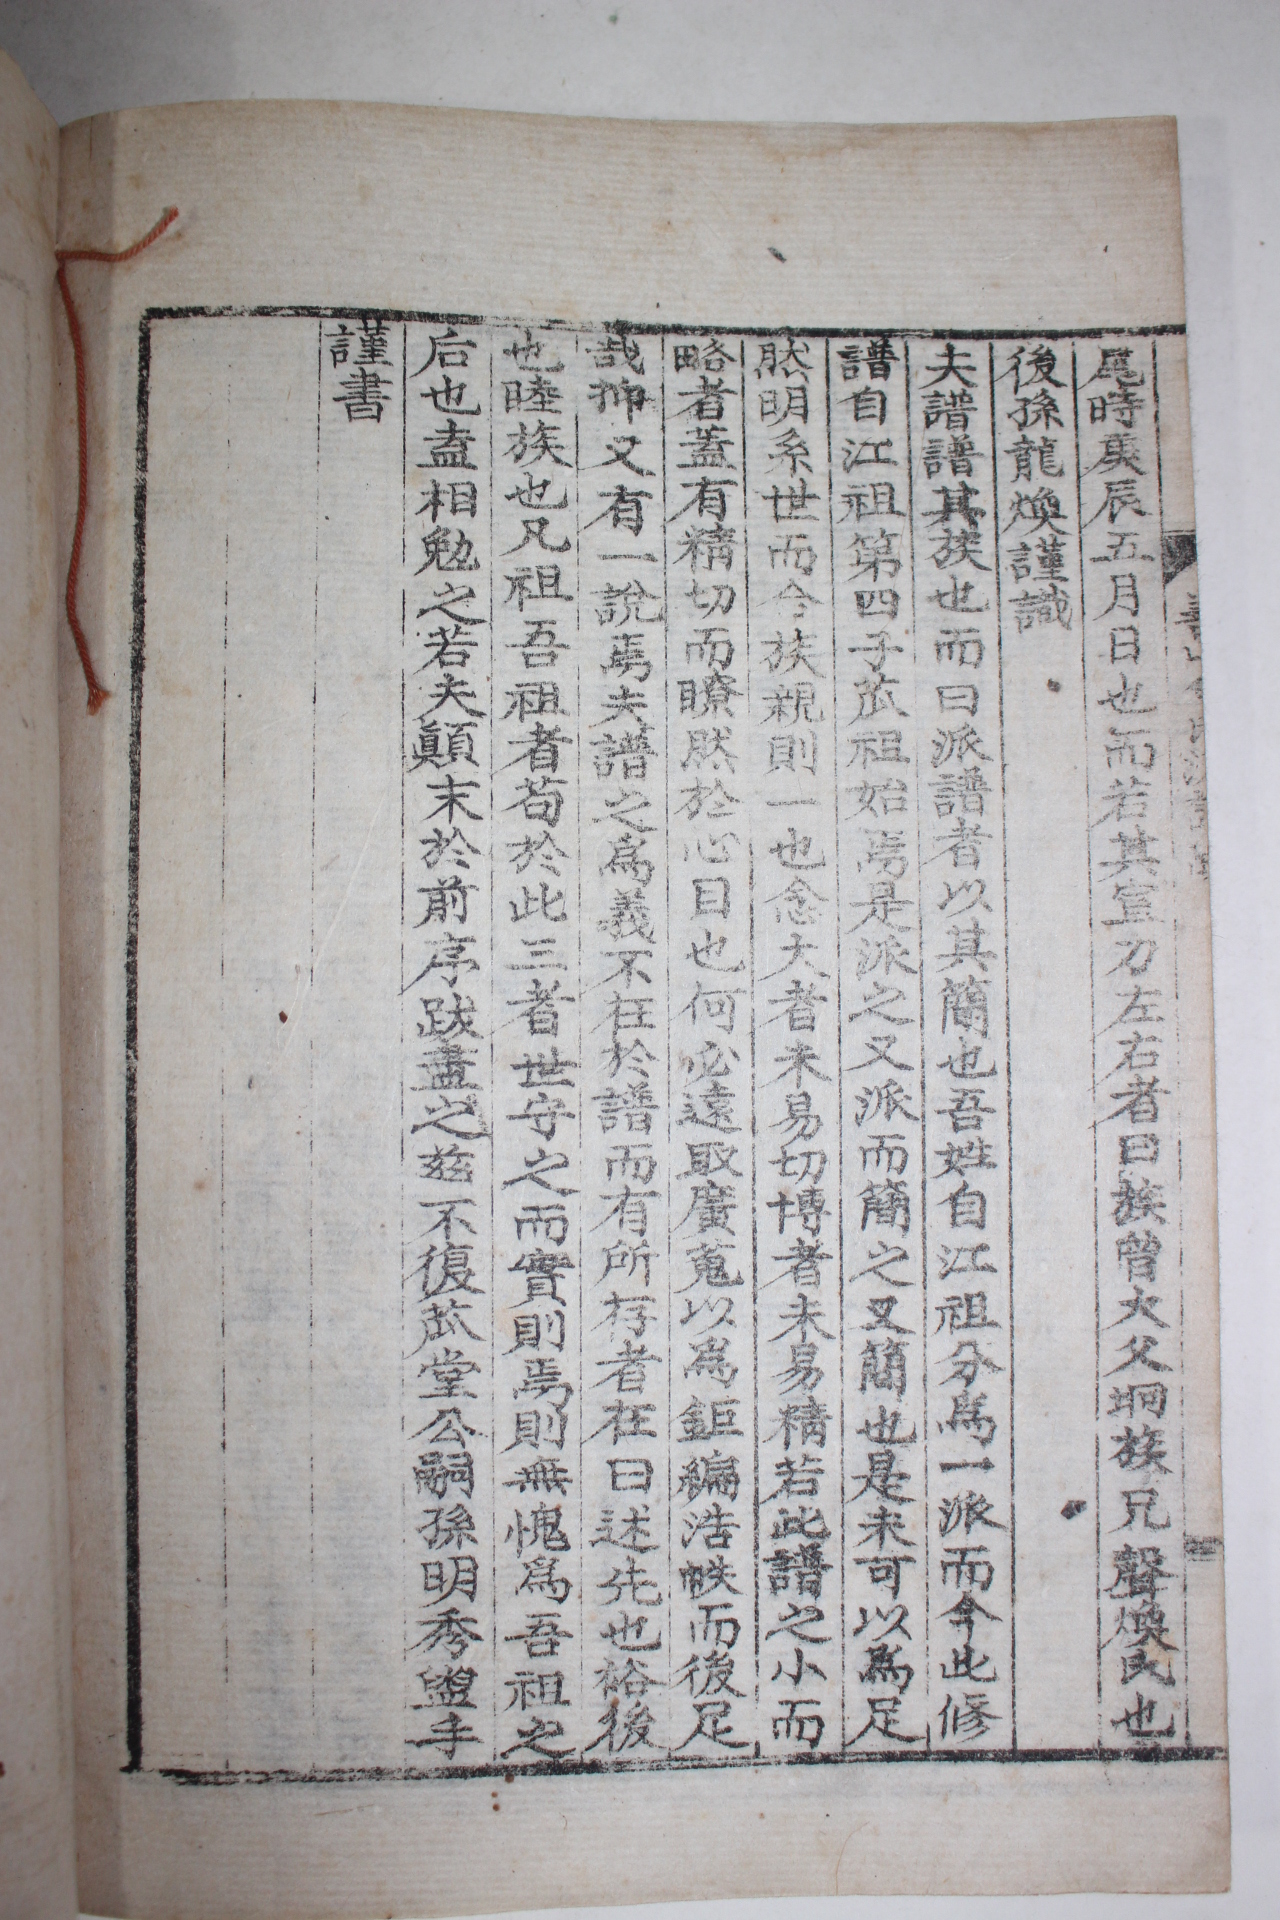 尾時庚辰五月日也而若其宣力左右者曰族曾大父坰族兄聲煥氏也
後孫龍煥謹識
夫譜譜其族也而曰派譜者以其簡也吾姓自江祖分爲一派而今此修
譜自江祖第四子苽祖始焉是派之又派而簡之又簡也是未可以爲足
然明系世而合族親則一也念大者未易切博者未易精若此譜之小而
略者蓋有精切而瞭然於心目也何必遠取廣蒐以爲鉅編浩帙而後足
哉抑又有一說焉夫譜之爲義不在於譜而有所存者在曰述先也裕後
也睦族也凡祖吾祖者苟於此三者世守之而實則焉則無愧爲吾祖之
后也盍相勉之若夫顛末於前序跋盡之玆不復苽堂公嗣孫明秀盥手
謹書